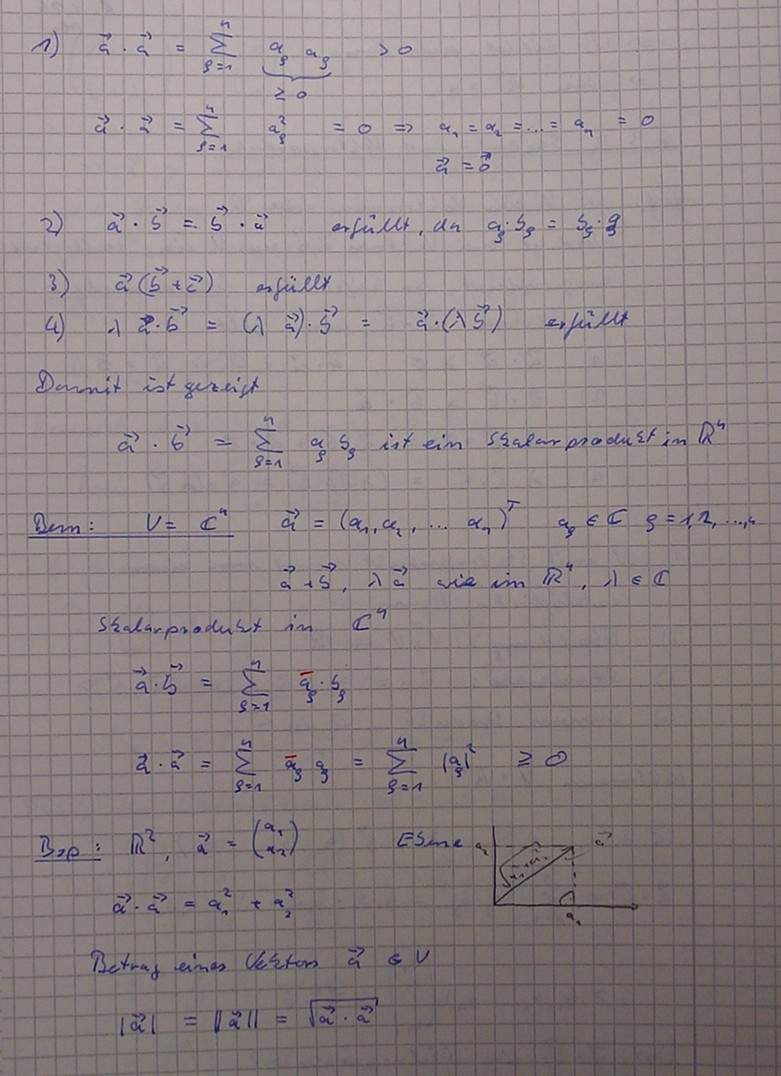 1) $\vec{a} \cdot \vec{a} = \sum_{\varrho=1}^{n} \underbrace{a_\varrho a_\varrho}_{\geq 0} > 0$
$\vec{a} \cdot \vec{a} = \sum_{\varrho=1}^{n} a_\varrho^2 = 0 \Rightarrow a_1 = a_2 = \ldots = a_n = 0$
$\vec{a} = \vec{0}$
2) $\vec{a} \cdot \vec{b} = \vec{b} \cdot \vec{a}$ erfüllt, da $a_\varrho \cdot b_\varrho = b_\varrho \cdot a_\varrho$
3) $\vec{a}(\vec{b} + \vec{c})$ erfüllt
4) $\lambda \vec{a} \cdot \vec{b} = (\lambda \vec{a}) \cdot \vec{b} = \vec{a} \cdot (\lambda \vec{b})$ erfüllt
Damit ist gezeigt
$\vec{a} \cdot \vec{b} = \sum_{\varrho=1}^{n} a_\varrho b_\varrho$ ist ein Skalarprodukt in $\mathbb{R}^n$
Bem: $V = \mathbb{C}^n$ $\vec{a} = (a_1, a_2, \ldots a_n)^T$ $a_\varrho \in \mathbb{C}$ $\varrho = 1, 2, \ldots, n$
$\vec{a} + \vec{b}, \lambda \vec{a}$ wie im $\mathbb{R}^n, \lambda \in \mathbb{C}$
Skalarprodukt in $\mathbb{C}^n$
$\vec{a} \cdot \vec{b} = \sum_{\varrho=1}^{n} \bar{a}_\varrho \cdot b_\varrho$
$\vec{a} \cdot \vec{a} = \sum_{\varrho=1}^{n} \bar{a}_\varrho a_\varrho = \sum_{\varrho=1}^{n} |a_\varrho|^2 \geq 0$
Bsp: $\mathbb{R}^2, \vec{a} = \begin{pmatrix} a_1 \\ a_2 \end{pmatrix}$ Ebene $a_2$ $\sqrt{a_1^2 + a_2^2}$ $\vec{a}$ $a_1$
$\vec{a} \cdot \vec{a} = a_1^2 + a_2^2$
Betrag eines Vektors $\vec{a} \in V$
$|\vec{a}| = \|\vec{a}\| = \sqrt{\vec{a} \cdot \vec{a}}$